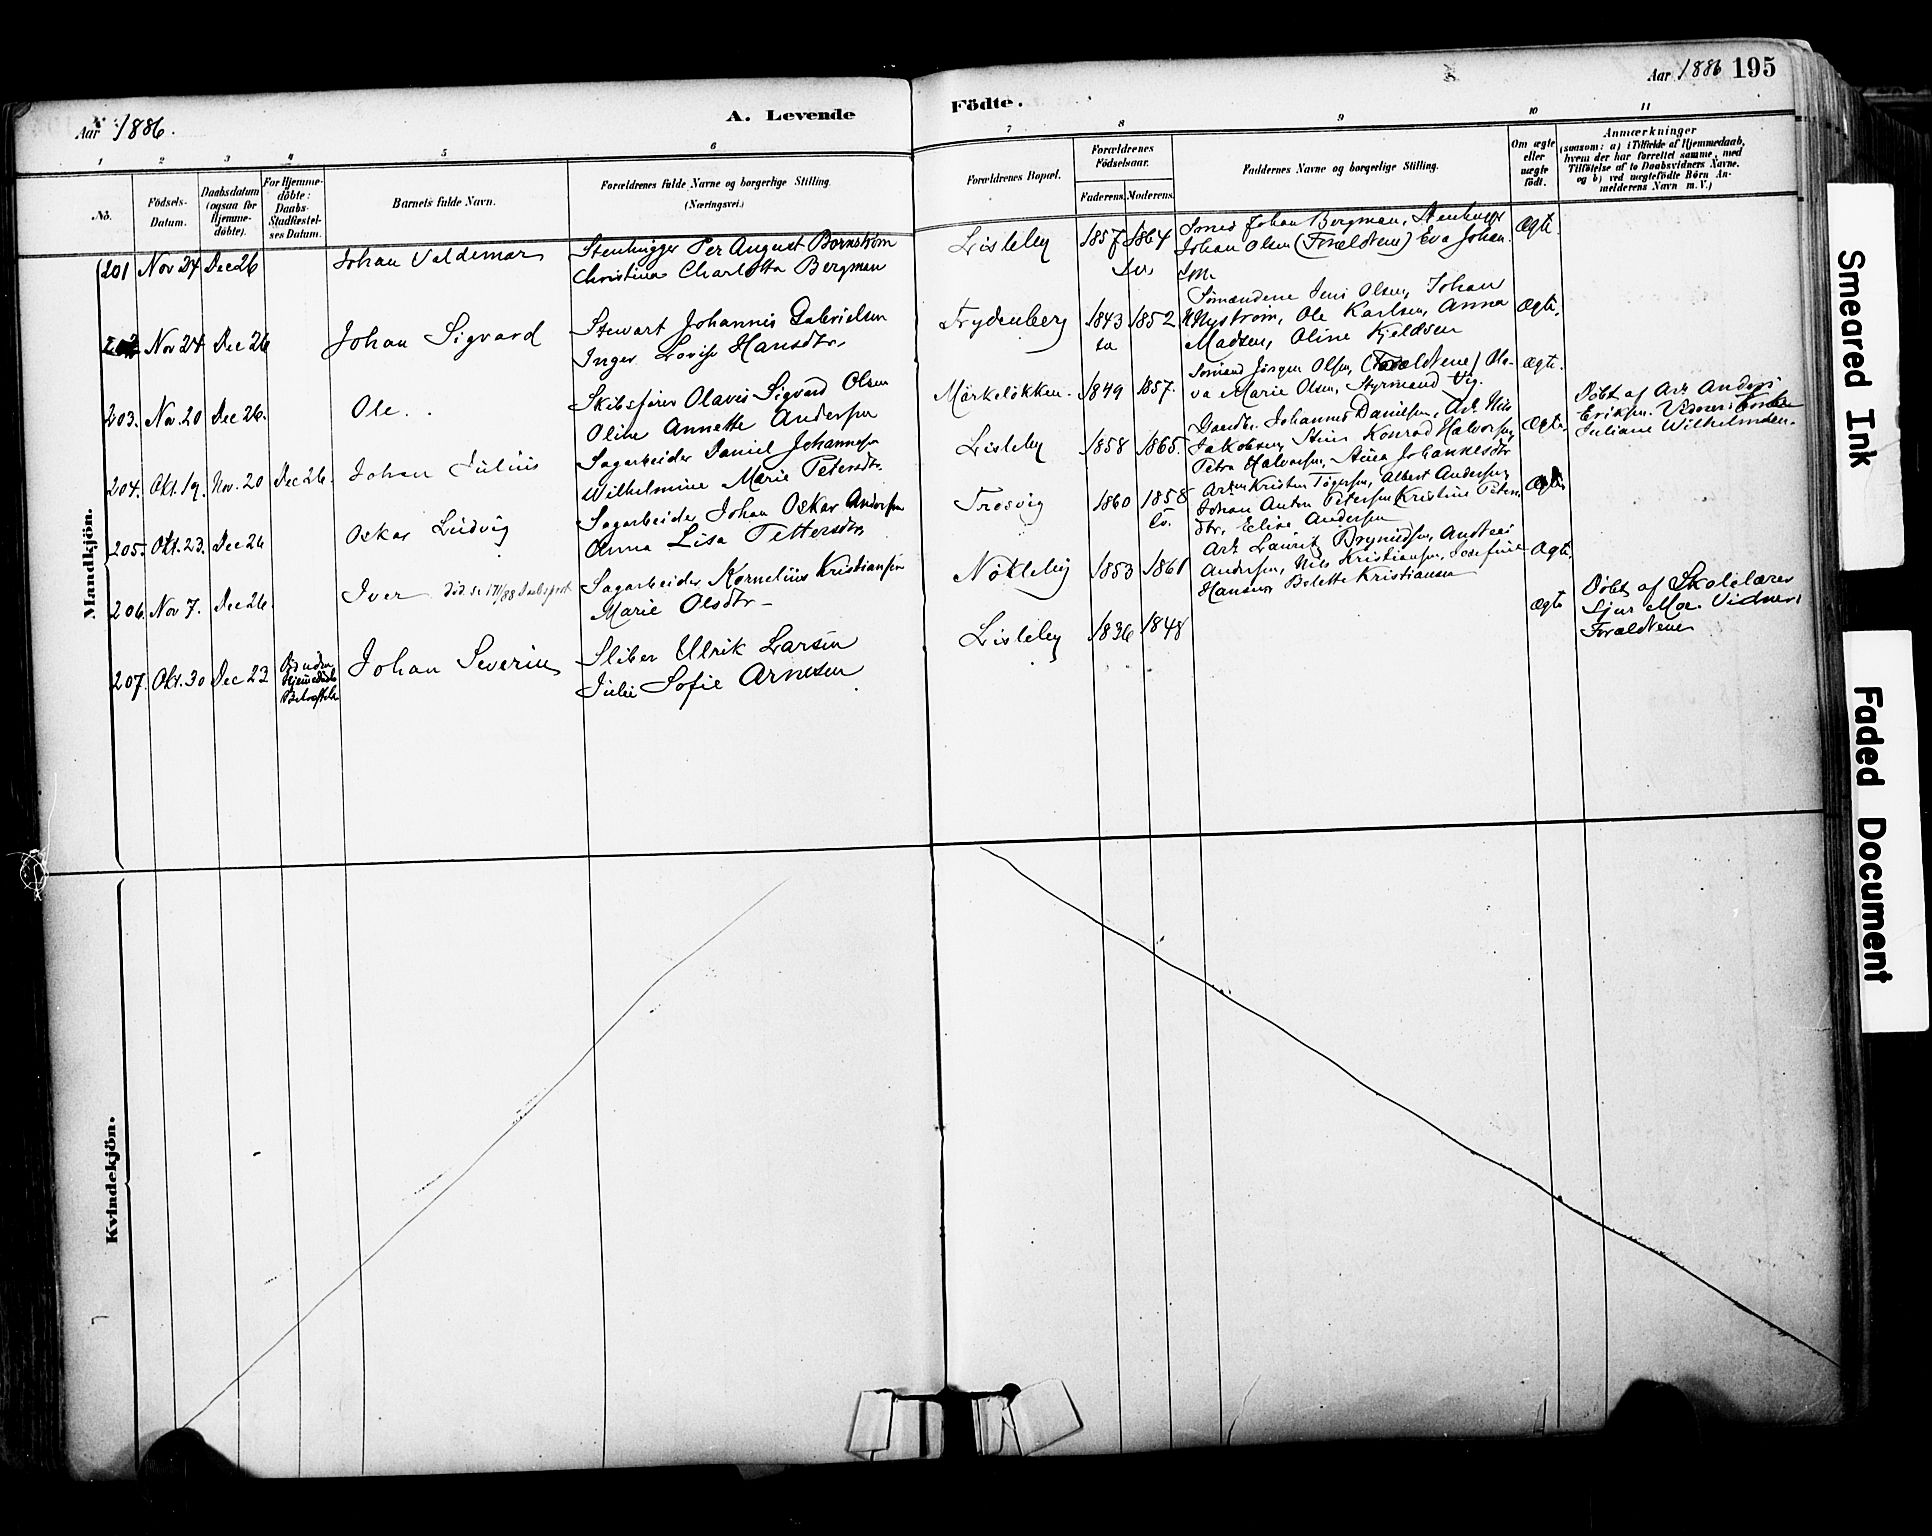 Aar 1886.
A. Levende
Födte.
Aar 1886 195
1 2 3 4 5 6 7 8 9 10 11
No.
Födsels-Datum.
Daabsdatum (ogsaa for Hjemmedöbte).
For Hjemmedöbte: Daabs-Stadfæstelses Datum.
Barnets fulde Navn.
Forældrenes fulde Navne og borgerlige Stilling.
(Næringsvei.)
Forældrenes Bopæl.
Forældrenes Födselsaar.
Faderens. Moderens.
Faddernes Navne og borgerlige Stilling.
Om ægte eller uægte födt.
Anmærkninger
(saasom: a) i Tilfælde af Hjemmedaab, hvem der har forrettet samme, med Tilföielse af to Daabsvidners Navne, og b) ved uægtefödte Börn Anmelderens Navn m. V.)
Mandkjön.
201 Nov 24 Dec 26 Johan Valdemar Stenhugger Per August Bornström
Christina Charlotta Bergman
Lisleby 1857 1864 Johan Bergman, Stenhugger
Johan Olsen (Forældrene) Eva Johan
sen
Ægte.
202 Nov 24 Dec 26 Johan Sigvard Stewart Johannes Gabrielsen
Inger Lovise Hansdtr.
Frydenberg 1843 1852 Sømændene Jens Olsen, Johan
Nystrøm, Ole Karlsen, Anna
Madsen, Oline Kjeldsen
Ægte.
203. Nov. 20 Dec 26. Ole. Skibsfører Olavis Sigvard Olsen
Oline Annette Andersen
Mørkeløkken. 1849 1857. Sømand Jørgen Olsen, (Forældrene) Ola-
va Marie Olsen, Styrmand
Ægte.
204. Okt. 19. Nov. 20 Dec 26. Johan Julius Sagarbeider Daniel Johannesen
Wilhelmine Marie Petersdtr.
Lisleby 1858 1865. Johannes Danielsen, Arb. Nils
Jakobsen, Konrad Halvorsen,
Petra Halvorsen, Johannesdtr
Ægte
Døbt af Arb. Anders
Eriksen. Vidner:
Juliane Wilhelmsen.
205. Okt. 23. Dec 26 Oskar Ludvig Sagarbeider Johan Oskar Andersen
Anna Lisa Pettersdtr.
Trosvig 1860 1858 Kristen Tøgersen, Albert Andersen,
Johan Anton Petersen, Kristine Peters
dtr, Elise Andersen
Ægte
206. Nov 7. Dec 26. Iver Sagarbeider Kornelius Kristiansen
Marie Olsdtr
Nøkleby 1853 1861 Arb. Laurits Brynildsen, Andreas
Andersen, Nils Kristiansen, Josefine
Hansen, Belette Kristiansen
Ægte.
207. Okt. 30 Dec 23 Johan Severin Sliber Ulrik Larsen
Julie Sofie Arnesen
Lisleby 1836 1848
Ægte
Døbt af Skolelærer
Sjur Moe. Vidner:
Forældrene
Kvindekjön.
Smeared Ink
Faded Document